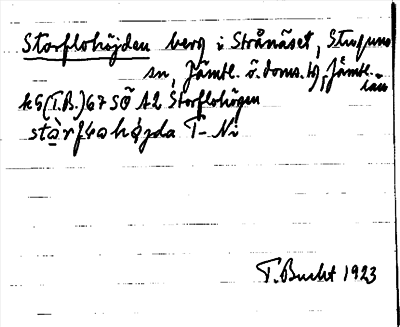 Storflohöjden berg i Strånäset, Stuguns
sn, Jämtl. ö. doms. tg, Jämtl.
län
k G (T.B.) 67 SÖ A2 Storflohögen
T- Ni
T. Bucht 1923